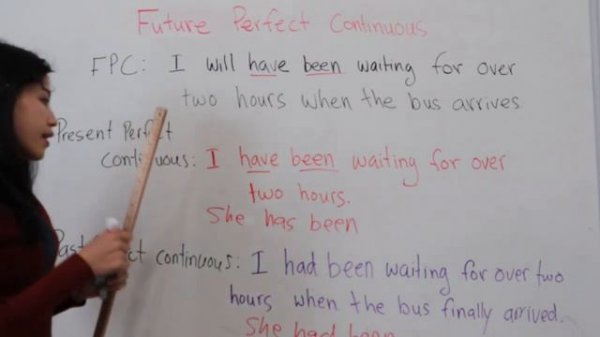 Future Perfect Continuous
FPC: I will have been waiting for over
two hours when the bus arrives
Present Perfect
continuous: I have been waiting for over
two hours.
She has been
Past continuous: I had been waiting for over two
hours when the bus finally arrived.
She had been